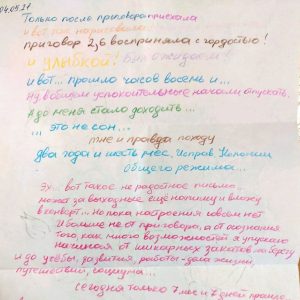 04.05.21
Только после приговора приехала
и вот так нарисовали...
приговор 2,6 восприняла с гордостью!
и улыбкой! Был ожидаем!
И вот... прошло часов восемь и...
Ну в общем успокоительные начали отпускать,
А до меня стало доходить...
... это не сон...
мне и правда походу
два года и шесть мес. Исправ. Колонии
Общего режима...
Эх.. вот такое не радостное письмо..
может за выходные ещё напишу и вложу
в конверт... Но пока настроения совсем нет
И больше не от приговора, а от осознания
того, как много возможностей я упускаю
начиная от шикарных закатов на берегу
и до учёбы, развития, работы - дела жизни,
путешествий, социума...
сегодня только 7 мес и 7 дней прошло